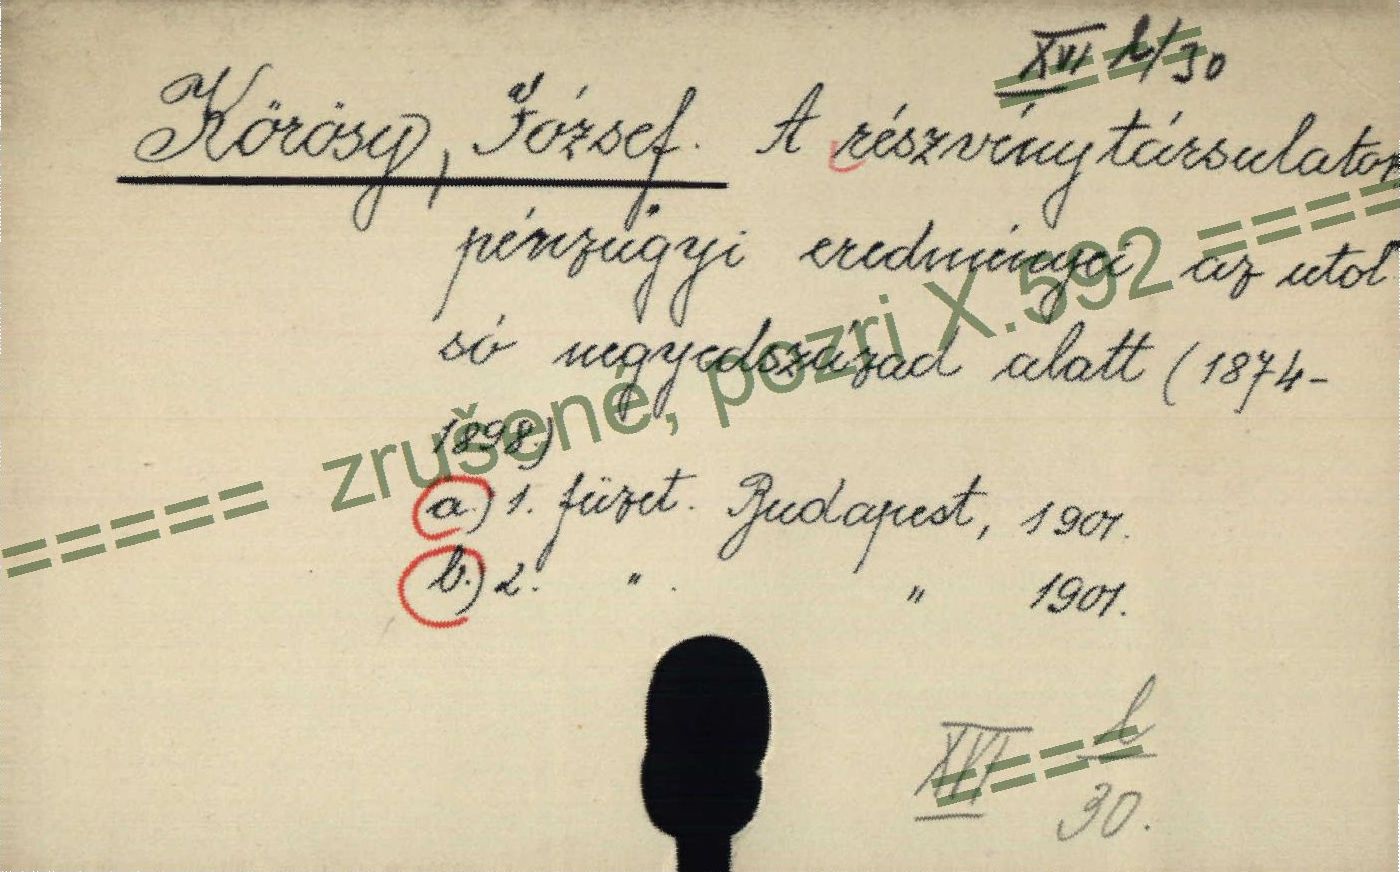 XVI h/30
Körösy, József. A részvénytársulatok
pénzügyi eredményei az utol
só negyedszázad alatt (1874-
1898)
zrušené, pozri X.592
a.) 1. füzet. Budapest, 1901.
b.) 2. " . " 1901.
XVI h
30.